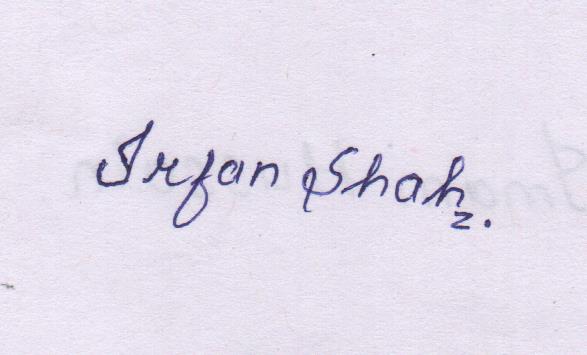 Irfan Shah.